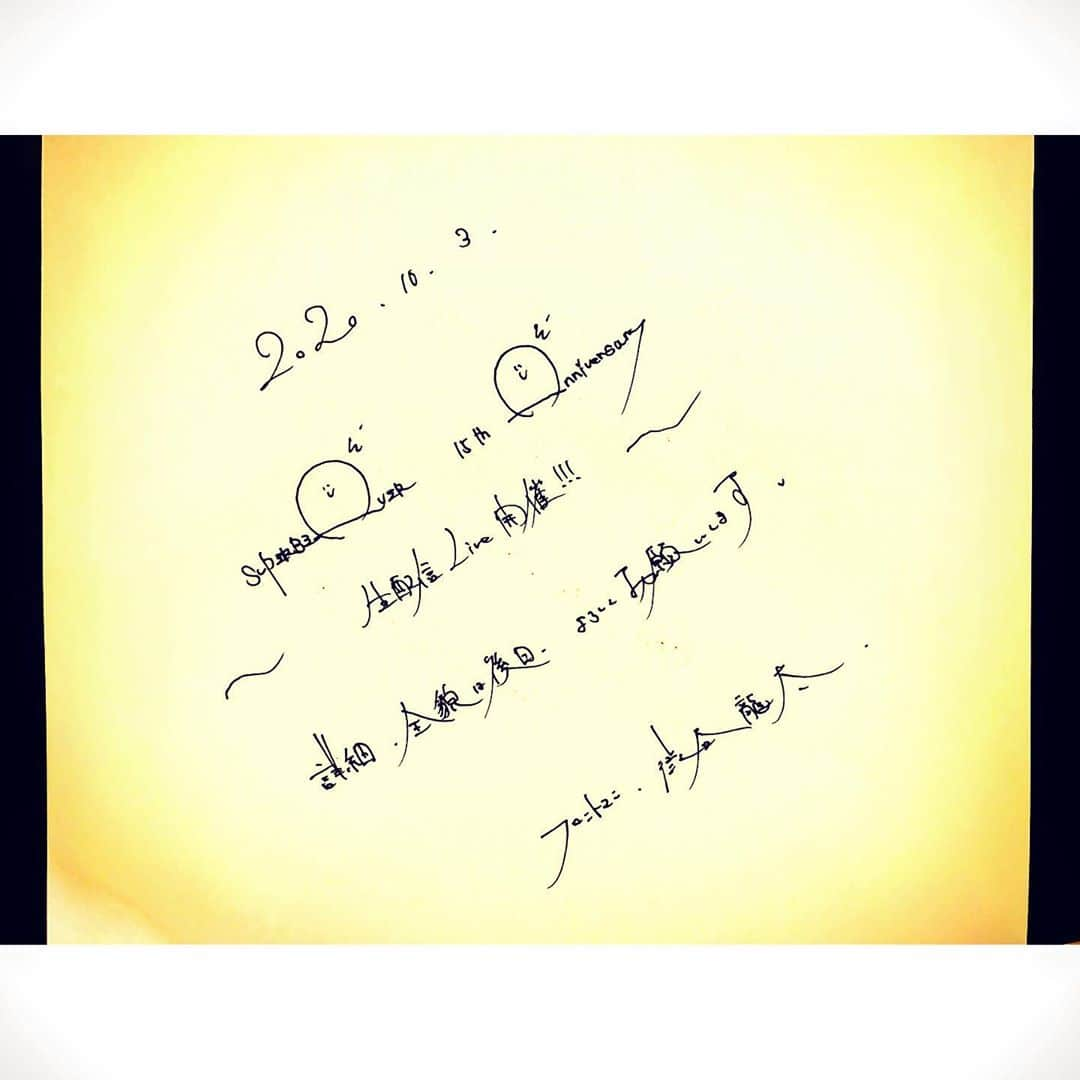 2020.10.3.
SUPER BEAVER 15th Anniversary
〜生配信Live開催!!!〜
詳細、全貌は後日。よろしくお願いします。
フロントマン・渋谷龍太.